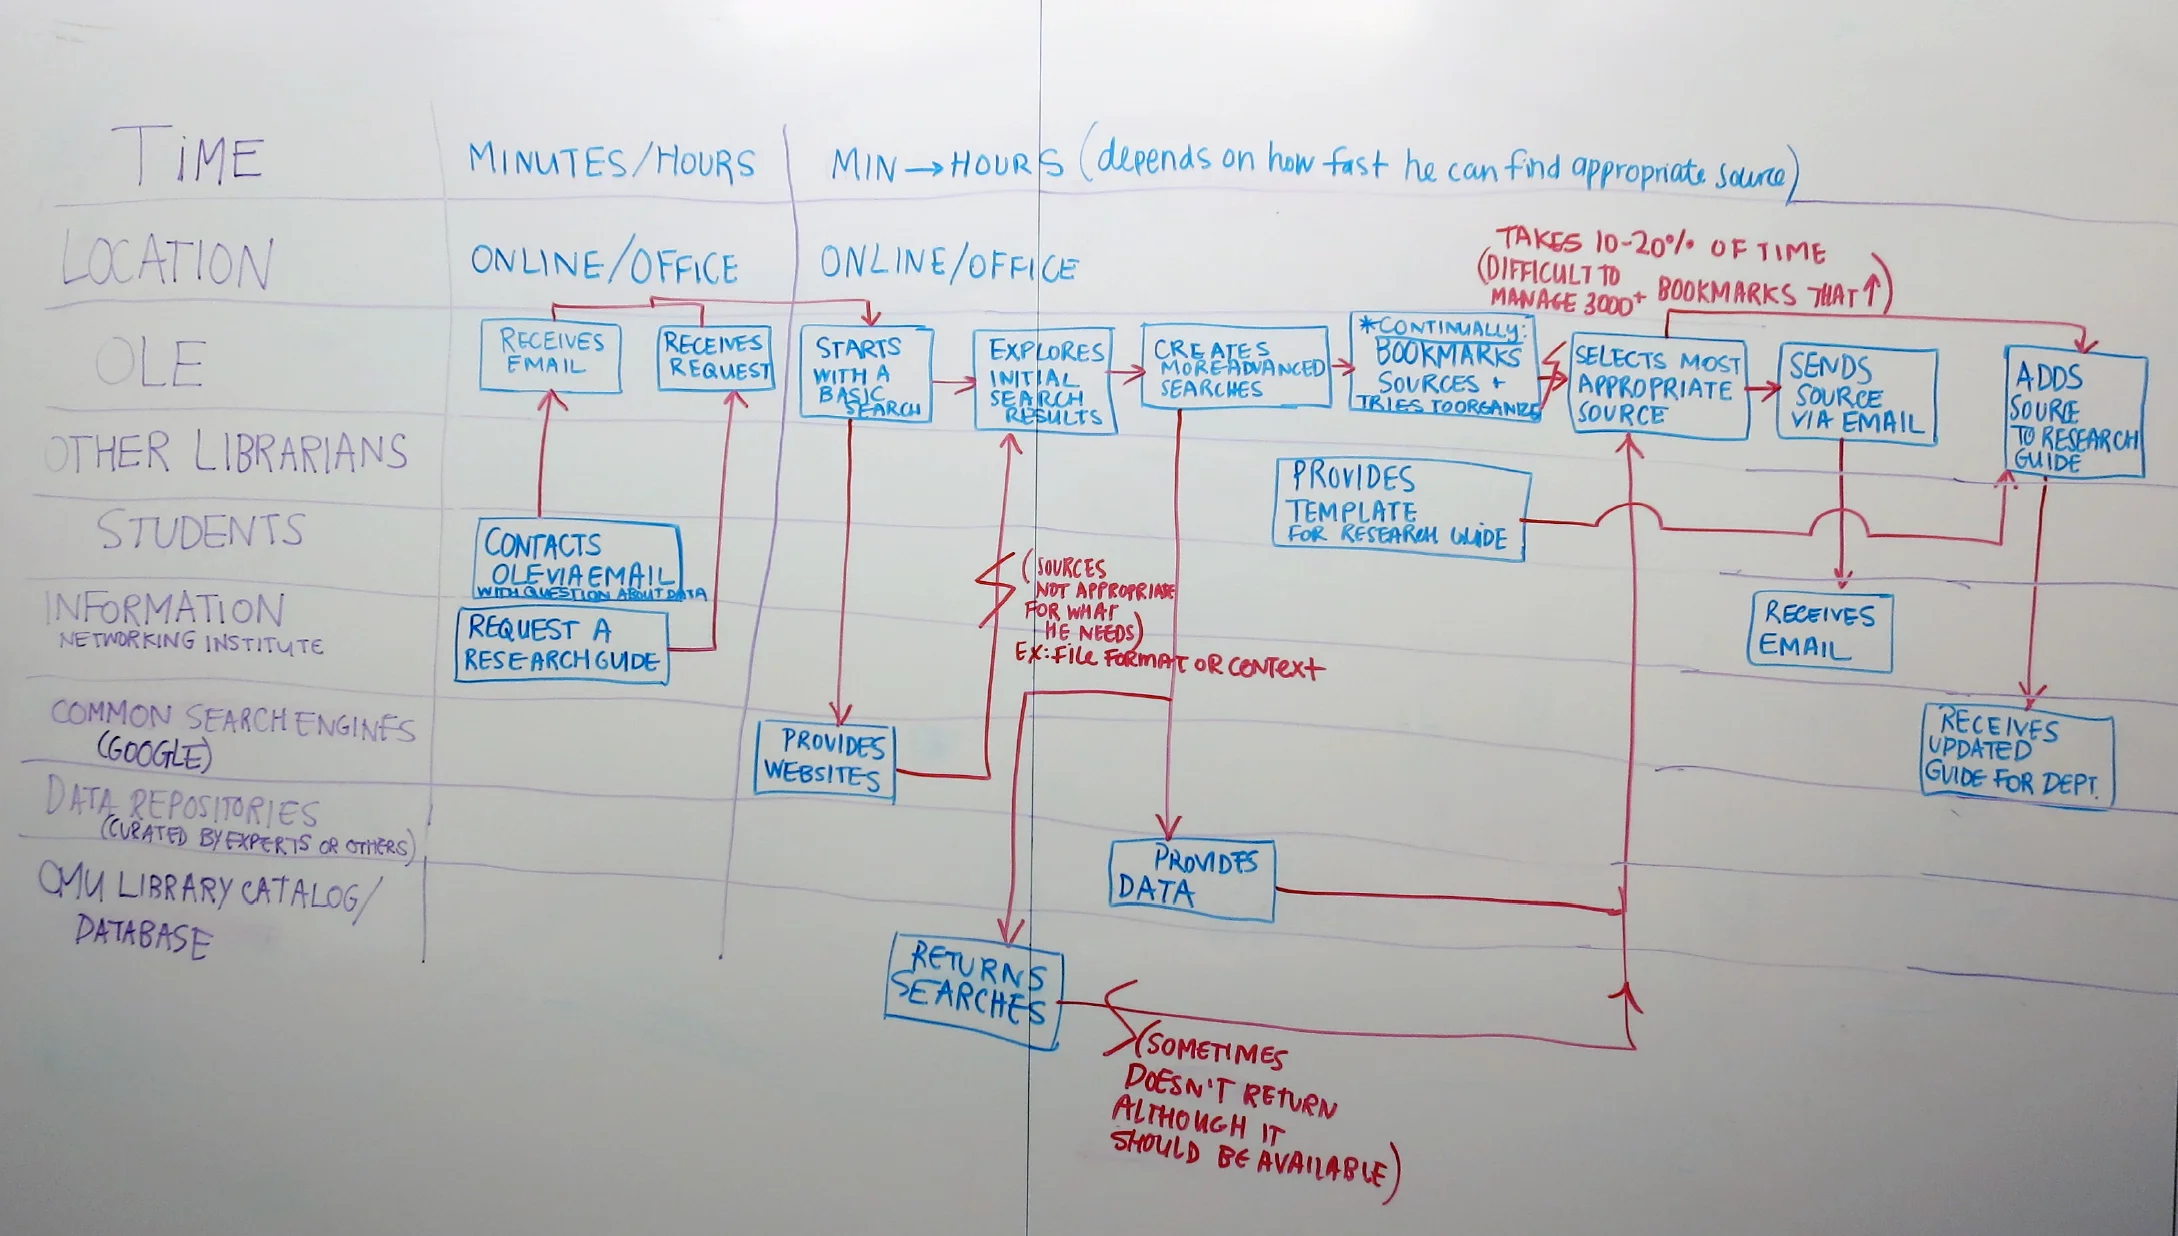 TIME
MINUTES/HOURS
MIN → HOURS (depends on how fast he can find appropriate source)
LOCATION
ONLINE/OFFICE
ONLINE/OFFICE
TAKES 10-20% OF TIME
(DIFFICULT TO
MANAGE 3000+ BOOKMARKS THAT ↑)
OLE
RECEIVES
EMAIL
RECEIVES
REQUEST
STARTS
WITH A
BASIC
SEARCH
EXPLORES
INITIAL
SEARCH
RESULTS
CREATES
MORE ADVANCED
SEARCHES
*CONTINUALLY:
BOOKMARKS
SOURCES +
TRIES TO ORGANIZE
SELECTS MOST
APPROPRIATE
SOURCE
SENDS
SOURCE
VIA EMAIL
ADDS
SOURCE
TO RESEARCH
GUIDE
OTHER LIBRARIANS
PROVIDES
TEMPLATE
FOR RESEARCH GUIDE
STUDENTS
CONTACTS
OLE VIA EMAIL
WITH QUESTION ABOUT DATA
(SOURCES
NOT APPROPRIATE
FOR WHAT
HE NEEDS)
EX: FILE FORMAT OR CONTEXT
RECEIVES
EMAIL
INFORMATION
NETWORKING INSTITUTE
REQUEST A
RESEARCH GUIDE
RECEIVES
UPDATED
GUIDE FOR DEPT.
COMMON SEARCH ENGINES
(GOOGLE)
PROVIDES
WEBSITES
DATA REPOSITORIES
(CURATED BY EXPERTS OR OTHERS)
PROVIDES
DATA
CMU LIBRARY CATALOG/
DATABASE
RETURNS
SEARCHES
(SOMETIMES
DOESN'T RETURN
ALTHOUGH IT
SHOULD BE AVAILABLE)